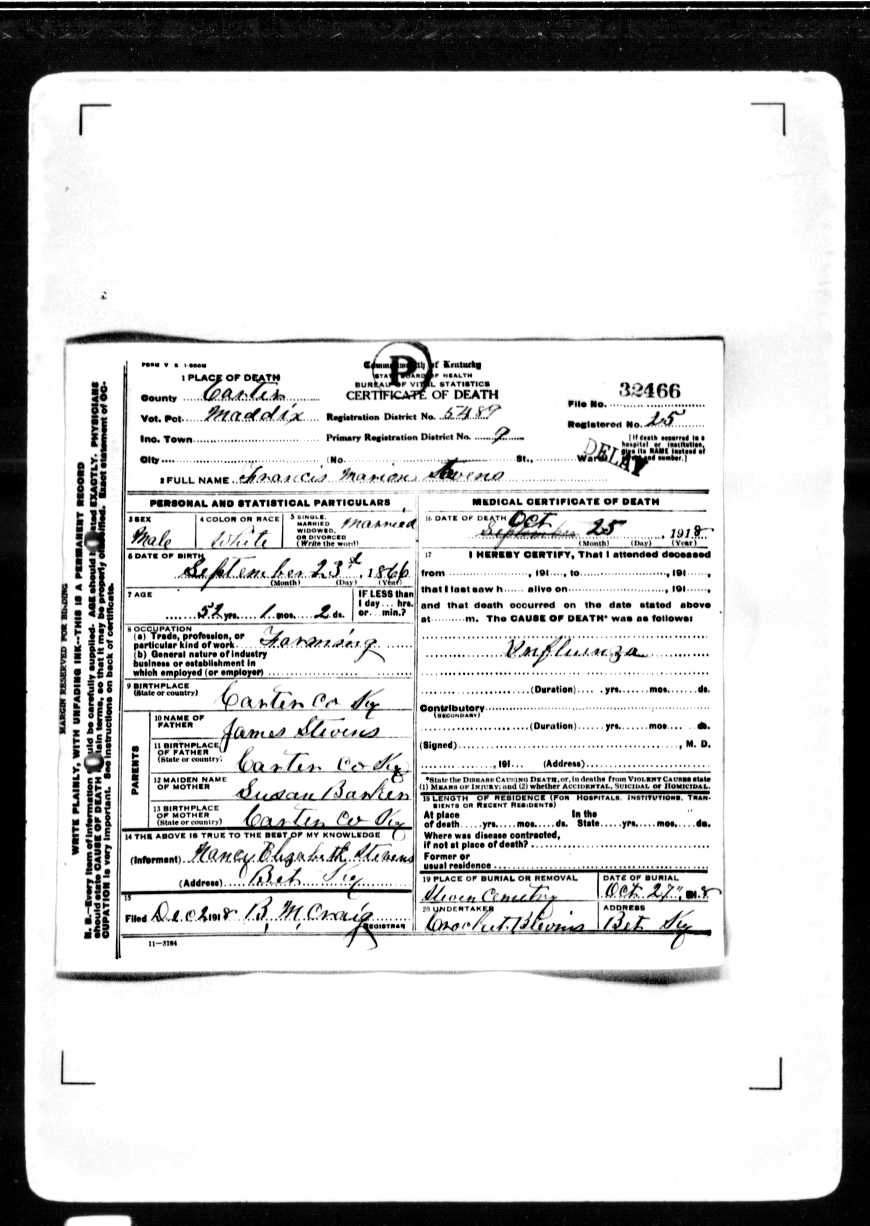 FORM V S 1-500M
Commonwealth of Kentucky
STATE BOARD OF HEALTH
BUREAU OF VITAL STATISTICS
CERTIFICATE OF DEATH
P
1 PLACE OF DEATH
County Carter
Vot. Pct. Maddix Registration District No. 5489
Inc. Town Primary Registration District No. 9
City (No. St., Ward)
File No. 32466
Registered No. 25
[If death occurred in a hospital or institution, give its NAME instead of street and number.]
DELAY
2 FULL NAME Francis Marion Stevens
PERSONAL AND STATISTICAL PARTICULARS
3 SEX Male
4 COLOR OR RACE White
5 SINGLE, MARRIED WIDOWED, OR DIVORCED (Write the word) Married
6 DATE OF BIRTH
September 23rd, 1866
(Month) (Day) (Year)
7 AGE
52 yrs. 1 mos. 2 ds.
IF LESS than 1 day... hrs. or... min.?
8 OCCUPATION
(a) Trade, profession, or particular kind of work Farming
(b) General nature of industry business or establishment in which employed (or employer)
9 BIRTHPLACE (State or country) Carter Co Ky
PARENTS
10 NAME OF FATHER James Stevens
11 BIRTHPLACE OF FATHER (State or country) Carter Co Ky
12 MAIDEN NAME OF MOTHER Susan Barker
13 BIRTHPLACE OF MOTHER (State or country) Carter Co Ky
14 THE ABOVE IS TRUE TO THE BEST OF MY KNOWLEDGE
(Informant) Nancy Elizabeth Stevens
(Address) Bet Ky
15
Filed Dec 2 1918 B. M. Craig
REGISTRAR
11—3184
MEDICAL CERTIFICATE OF DEATH
16 DATE OF DEATH Oct
September 25, 1918
(Month) (Day) (Year)
17 I HEREBY CERTIFY, That I attended deceased
from, 191, to, 191,
that I last saw h alive on, 191,
and that death occurred on the date stated above
at m. The CAUSE OF DEATH* was as follows:
Influenza
(Duration) yrs. mos. ds.
Contributory
(SECONDARY)
(Duration) yrs. mos. ds.
(Signed), M. D.
, 191 (Address)
*State the DISEASE CAUSING DEATH, or, in deaths from VIOLENT CAUSES state
(1) MEANS OF INJURY; and (2) whether ACCIDENTAL, SUICIDAL or HOMICIDAL.
18 LENGTH OF RESIDENCE (FOR HOSPITALS, INSTITUTIONS, TRANSIENTS OR RECENT RESIDENTS)
At place In the
of death yrs. mos. ds. State yrs. mos. ds.
Where was disease contracted,
if not at place of death?
Former or
usual residence
19 PLACE OF BURIAL OR REMOVAL Steven Cemetry
DATE OF BURIAL Oct. 27", 1918
20 UNDERTAKER Crocket Blevins
ADDRESS Bet Ky
MARGIN RESERVED FOR BINDING
WRITE PLAINLY, WITH UNFADING INK--THIS IS A PERMANENT RECORD
N. B.—Every item of information should be carefully supplied. AGE should be stated EXACTLY. PHYSICIANS
should state CAUSE OF DEATH in plain terms, so that it may be properly classified. Exact statement of OC-
CUPATION is very important. See instructions on back of certificate.